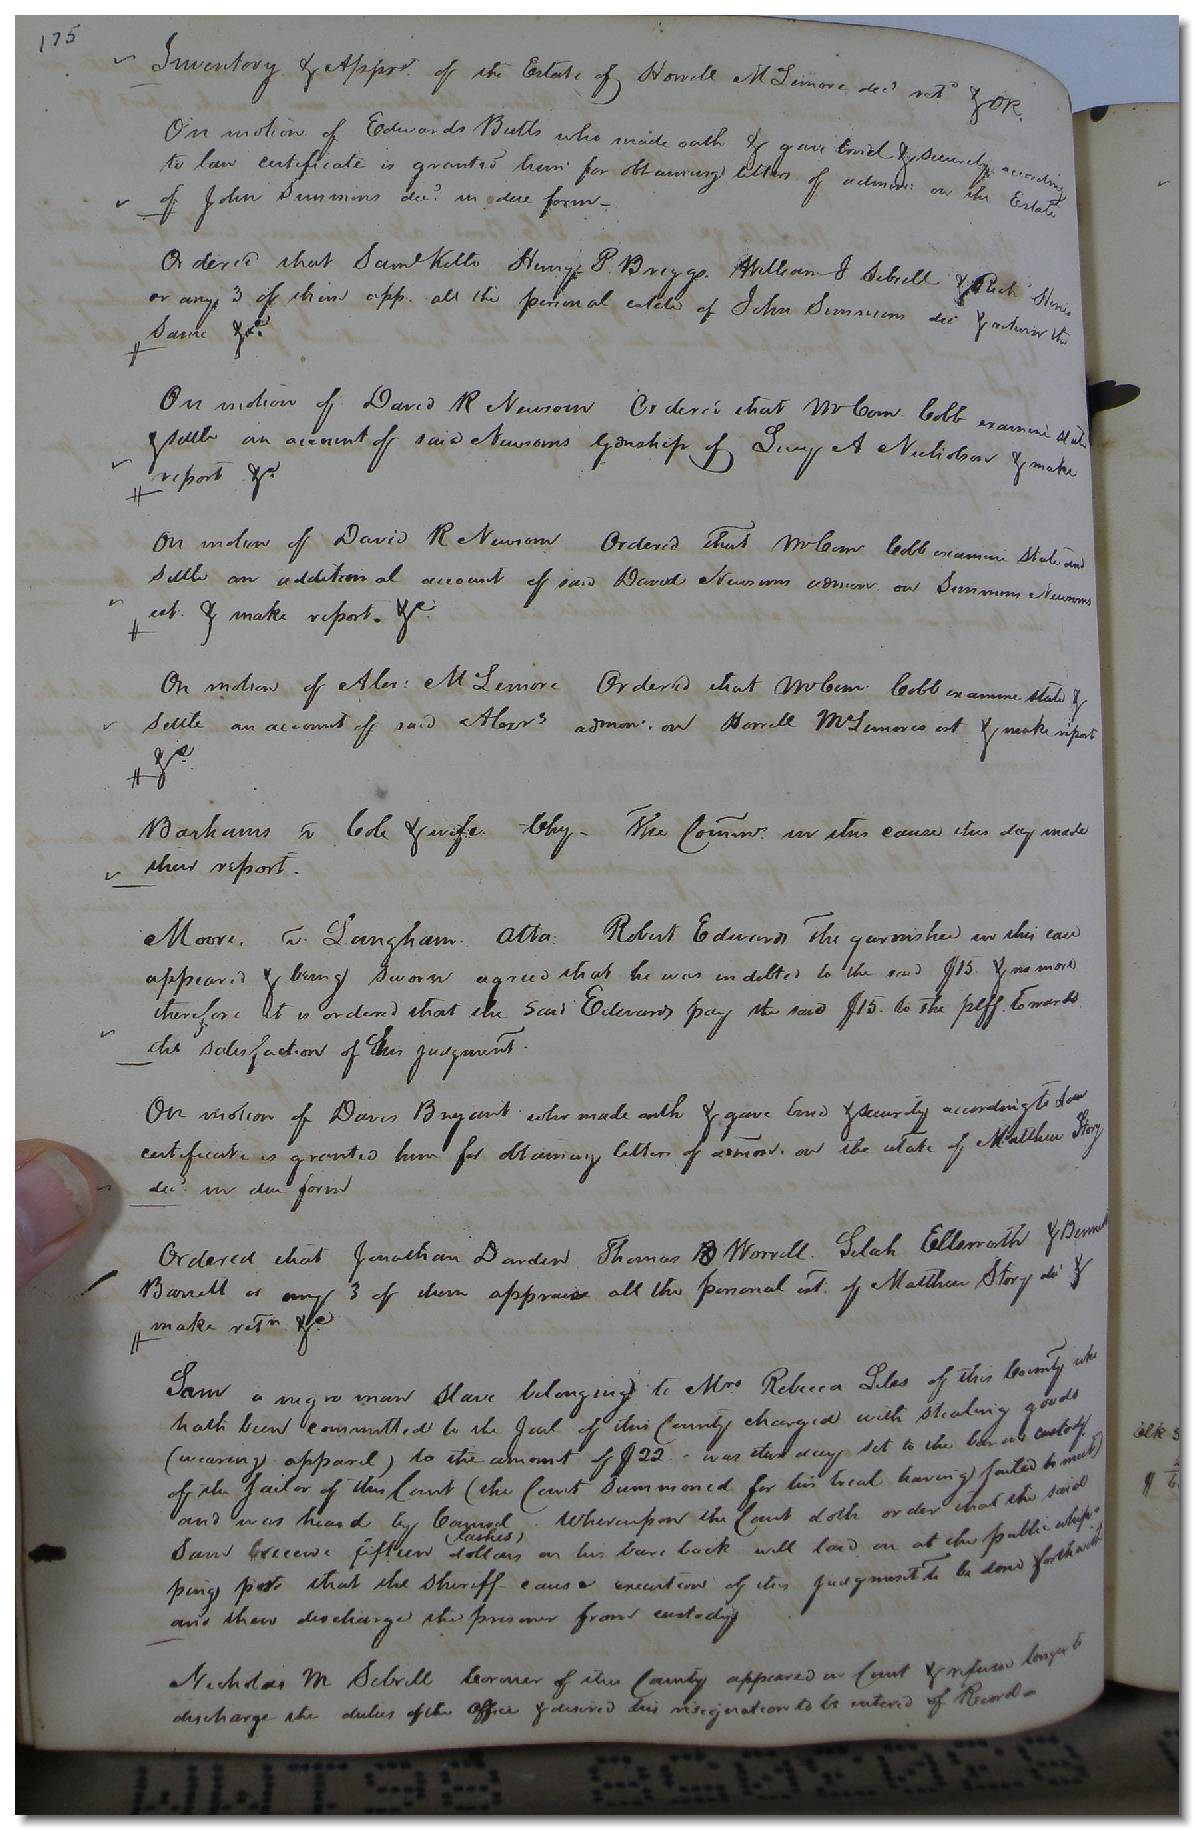 175
Inventory & Apprt. of the Estate of Howell McLemore decd retd & OR.
On motion of Edwards Butts who made oath & gave bond & security according
to law certificate is granted him for obtaining letters of admon: on the Estate
of John Simmons decd. in due form
Ordered that Saml Kello Henry P. Briggs. William J Sebrell & Rich
or any 3 of them app. all the personal estate of John Simmons dec & return the
Same &c.
On motion of David R Newsom Ordered that Mr Com. Cobb examine state
& settle an account of said Newsoms gdnship of Lucy A Nicholson & make
report &c
On motion of David R Newsom Ordered that Mr Com Cobb examine State and
Settle an additional account of said David Newsoms admon. on Simmons Newsoms
est. & make report. &c.
On motion of Alex: McLemore Ordered that Mr Com. Cobb examine state &
Settle an account of said Alexrs admon. on Howell McLemores est & make report
&c.
Barhams vs Cole & wife. Chy- The Commrs. in this cause this day made
their report.
Moore. vs. Langham. Atta: Robert Edwards The garnishee in this case
appeared & being sworn agreed that he was indebted to the said $15. & no more
therefore it is ordered that the said Edwards pay the said $15. to the plff. towards
the satisfaction of his judgment.
On motion of Davis Bryant who made oath & gave bond & security according to law
certificate is granted him for obtaining letters of admon. on the estate of Matthew Story
decd. in due form
Ordered that Jonathan Darden Thomas B Worrell. Selah &
Barrett or any 3 of them appraise all the personal est. of Matthew Story decd &
make retn &c.
Sam a negro man Slave belonging to Mrs Rebecca Liles of this County who
hath been committed to the Jail of this County charged with stealing goods
(wearing apparel) to the amount of $22. was this day set to the bar in custody
of the Jailor of this Court (the Court Summoned for his trial having failed to meet)
and was heard by Counsel. Whereupon the Court doth order that the said
(lashes)
Sam receive fifteen dollars on his bare back well laid on at the public whip-
ping post that the Sheriff cause execution of this judgment to be done forthwith
and then discharge the prisoner from custody
Nicholas M Sebrell Coroner of this County appeared in Court & refuse longer to
discharge the duties of the Office & desired his resignation to be entered of Record-